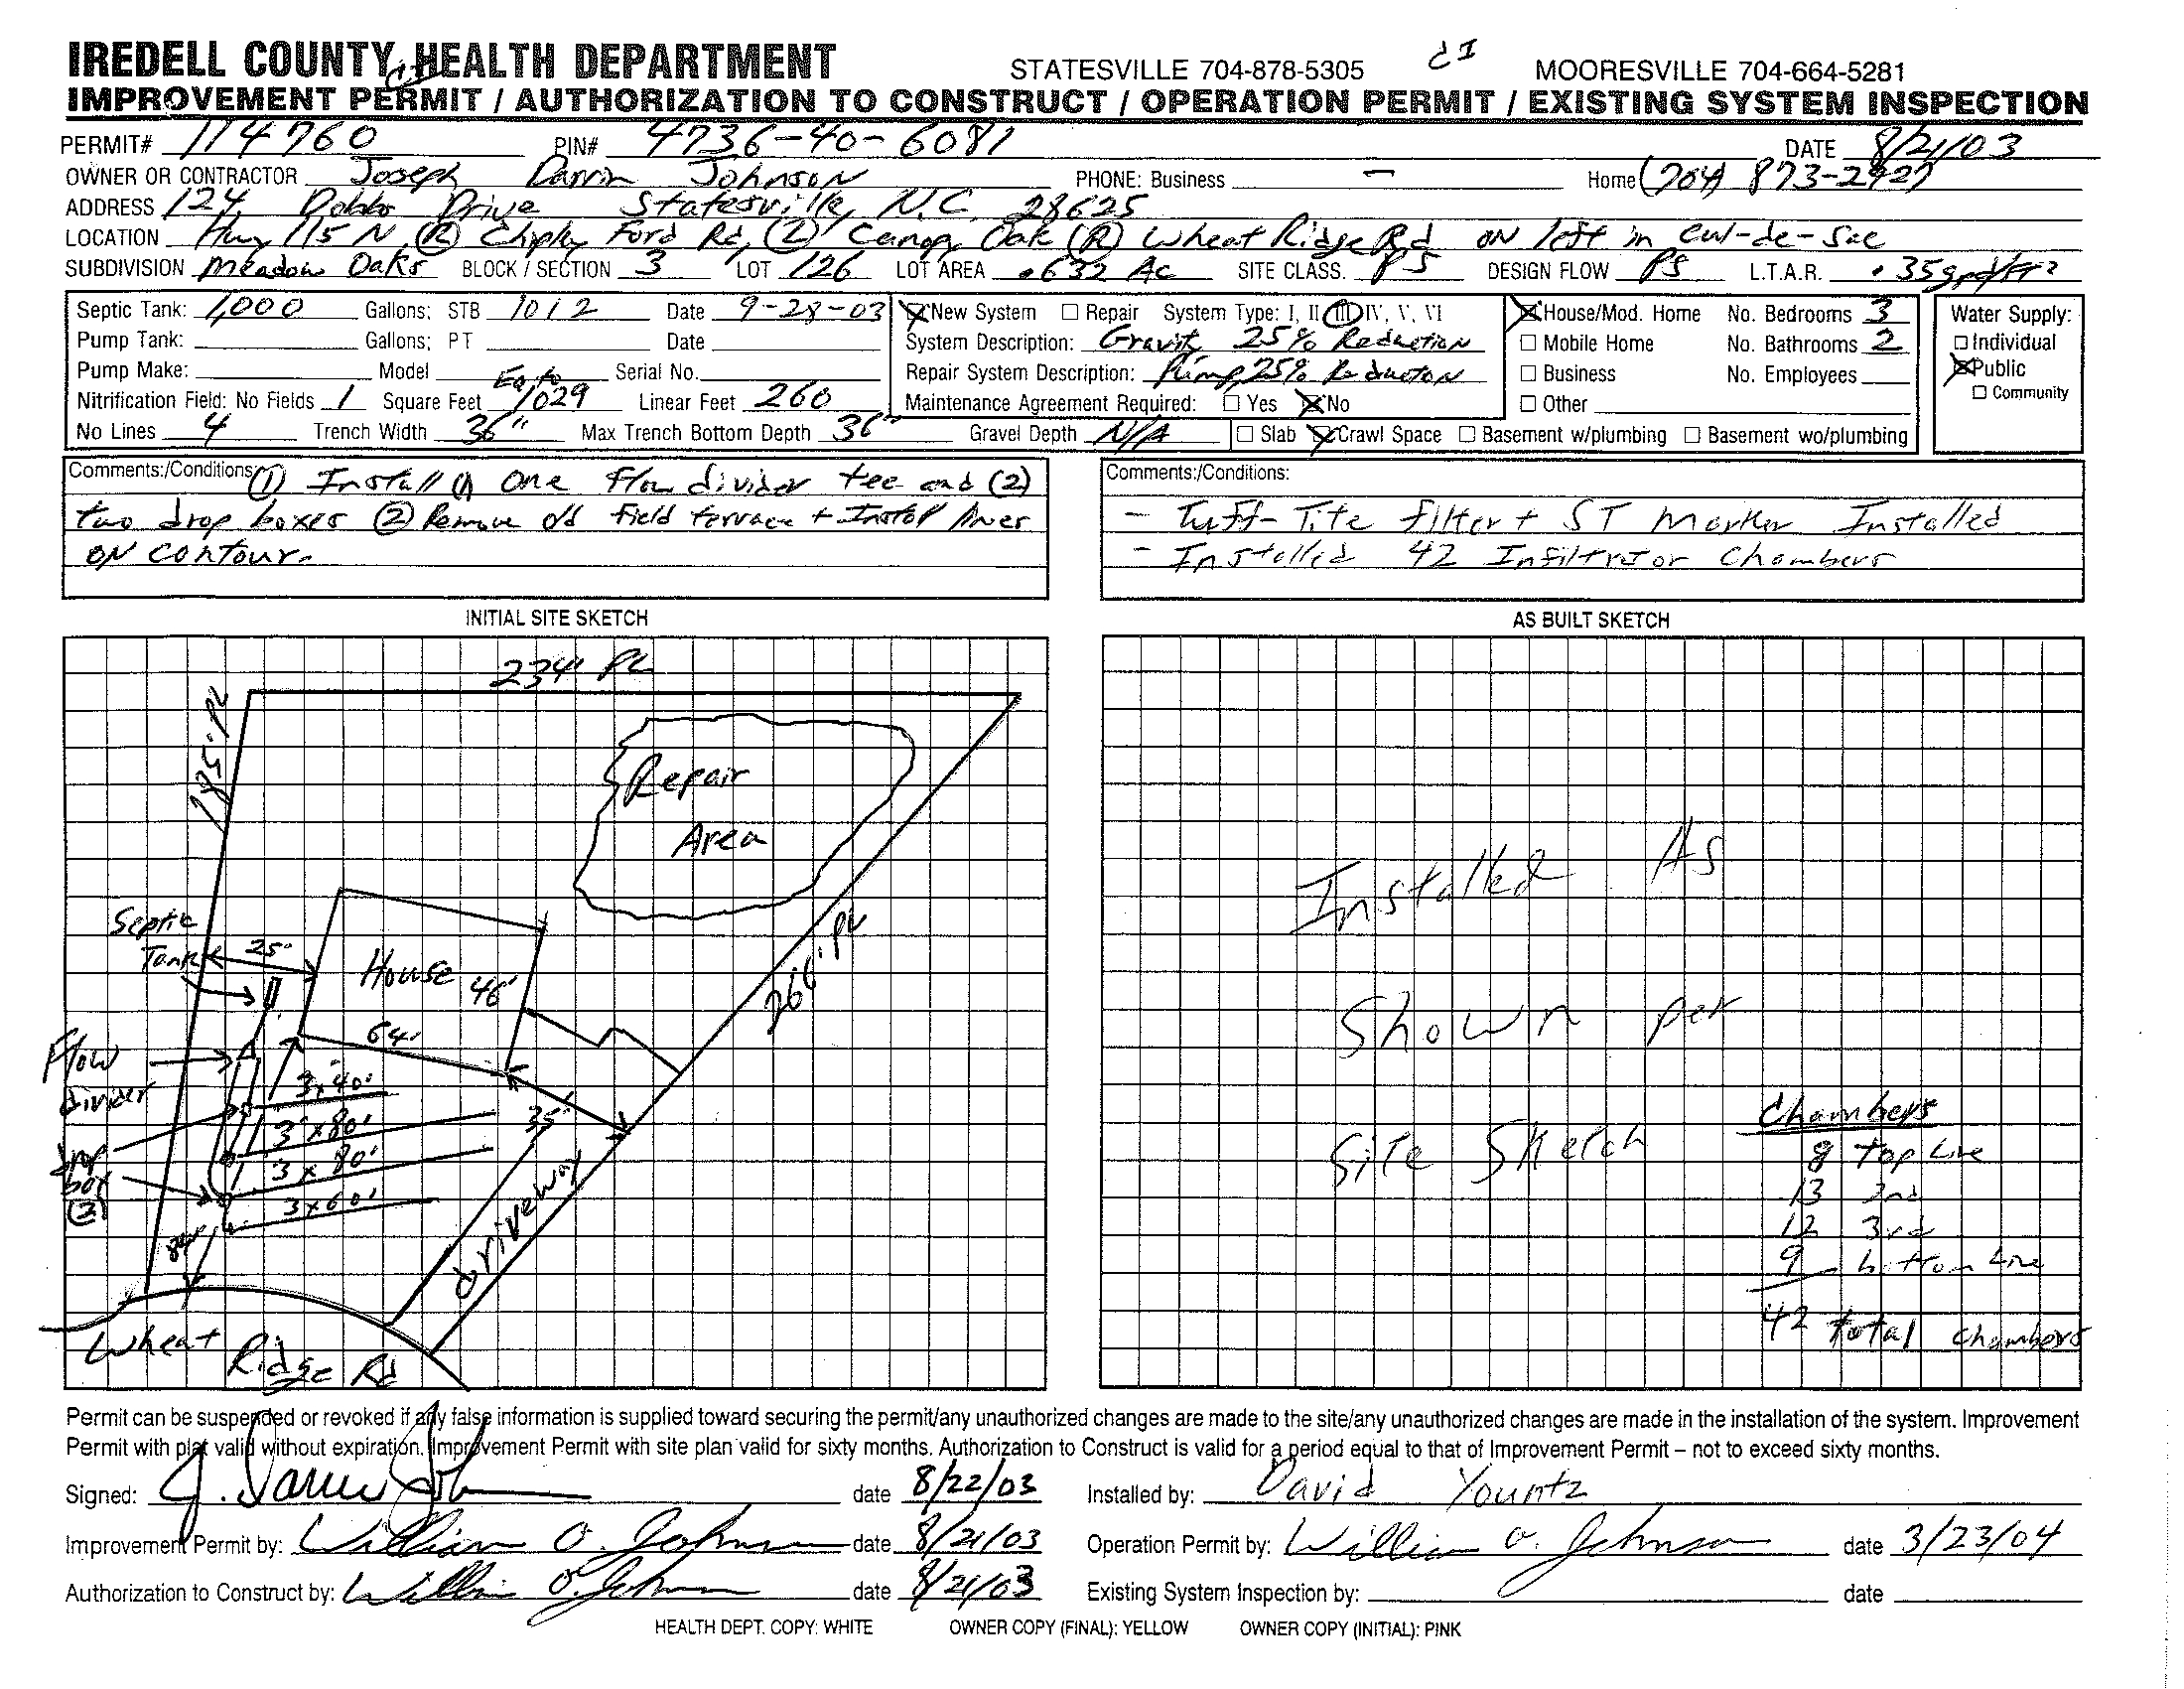 IREDELL COUNTY HEALTH DEPARTMENT STATESVILLE 704-878-5305 CI MOORESVILLE 704-664-5281
IMPROVEMENT PERMIT / AUTHORIZATION TO CONSTRUCT / OPERATION PERMIT / EXISTING SYSTEM INSPECTION
PERMIT# 114760 PIN# 4736-40-6081 DATE 8/21/03
OWNER OR CONTRACTOR Joseph Darrin Johnson PHONE: Business - Home (704) 873-2927
ADDRESS 124 Dobbs Drive Statesville, N.C. 28625
LOCATION Hwy 115 N, (R) Chipley Ford Rd, (L) Canopy Oak (R) Wheat Ridge Rd ON left in cul-de-sac
SUBDIVISION Meadow Oaks BLOCK / SECTION 3 LOT 126 LOT AREA .632 Ac SITE CLASS. PS DESIGN FLOW PS L.T.A.R. .35gpd/ft²
Septic Tank: 1,000 Gallons: STB 1012 Date 9-28-03 New System Repair System Type: I, II III IV, V, VI House/Mod. Home No. Bedrooms 3 Water Supply:
Pump Tank: Gallons; PT Date System Description: Gravity 25% Reduction Mobile Home No. Bathrooms 2 Individual
Pump Make: Model Serial No. Repair System Description: Pump, 25% Reduction Business No. Employees Public
Nitrification Field: No Fields 1 Square Feet Eq to 1029 Linear Feet 260 Maintenance Agreement Required: Yes No Other Community
No Lines 4 Trench Width 36" Max Trench Bottom Depth 36" Gravel Depth N/A Slab Crawl Space Basement w/plumbing Basement wo/plumbing
Comments:/Conditions: (1) Install (1) one Flow divider tee and (2)
two drop boxes (2) Remove old field terrace + Install lines
ON contour.
Comments:/Conditions:
- Tuff-Tite filter + ST Marker Installed
- Installed 42 Infiltrator Chambers
INITIAL SITE SKETCH
234' PL
185' PL
Repair
Area
Septic
Tank
25'
House
46'
64'
266' PL
Flow
divider
3x40'
3'x80'
3 x 80'
3x60'
35'
drop
box
(2)
84'
driveway
Wheat
Ridge Rd
AS BUILT SKETCH
Installed As
Shown per
Site Sketch
Chambers
8 Top Line
13 2nd
12 3rd
9 bottom Line
42 total chambers
Permit can be suspended or revoked if any false information is supplied toward securing the permit/any unauthorized changes are made to the site/any unauthorized changes are made in the installation of the system. Improvement
Permit with plat valid without expiration. Improvement Permit with site plan valid for sixty months. Authorization to Construct is valid for a period equal to that of Improvement Permit – not to exceed sixty months.
Signed: date 8/22/03 Installed by: David Yountz
Improvement Permit by: William O. Johnson date 8/21/03 Operation Permit by: William O. Johnson date 3/23/04
Authorization to Construct by: William O. Johnson date 8/21/03 Existing System Inspection by: date
HEALTH DEPT. COPY: WHITE OWNER COPY (FINAL): YELLOW OWNER COPY (INITIAL): PINK